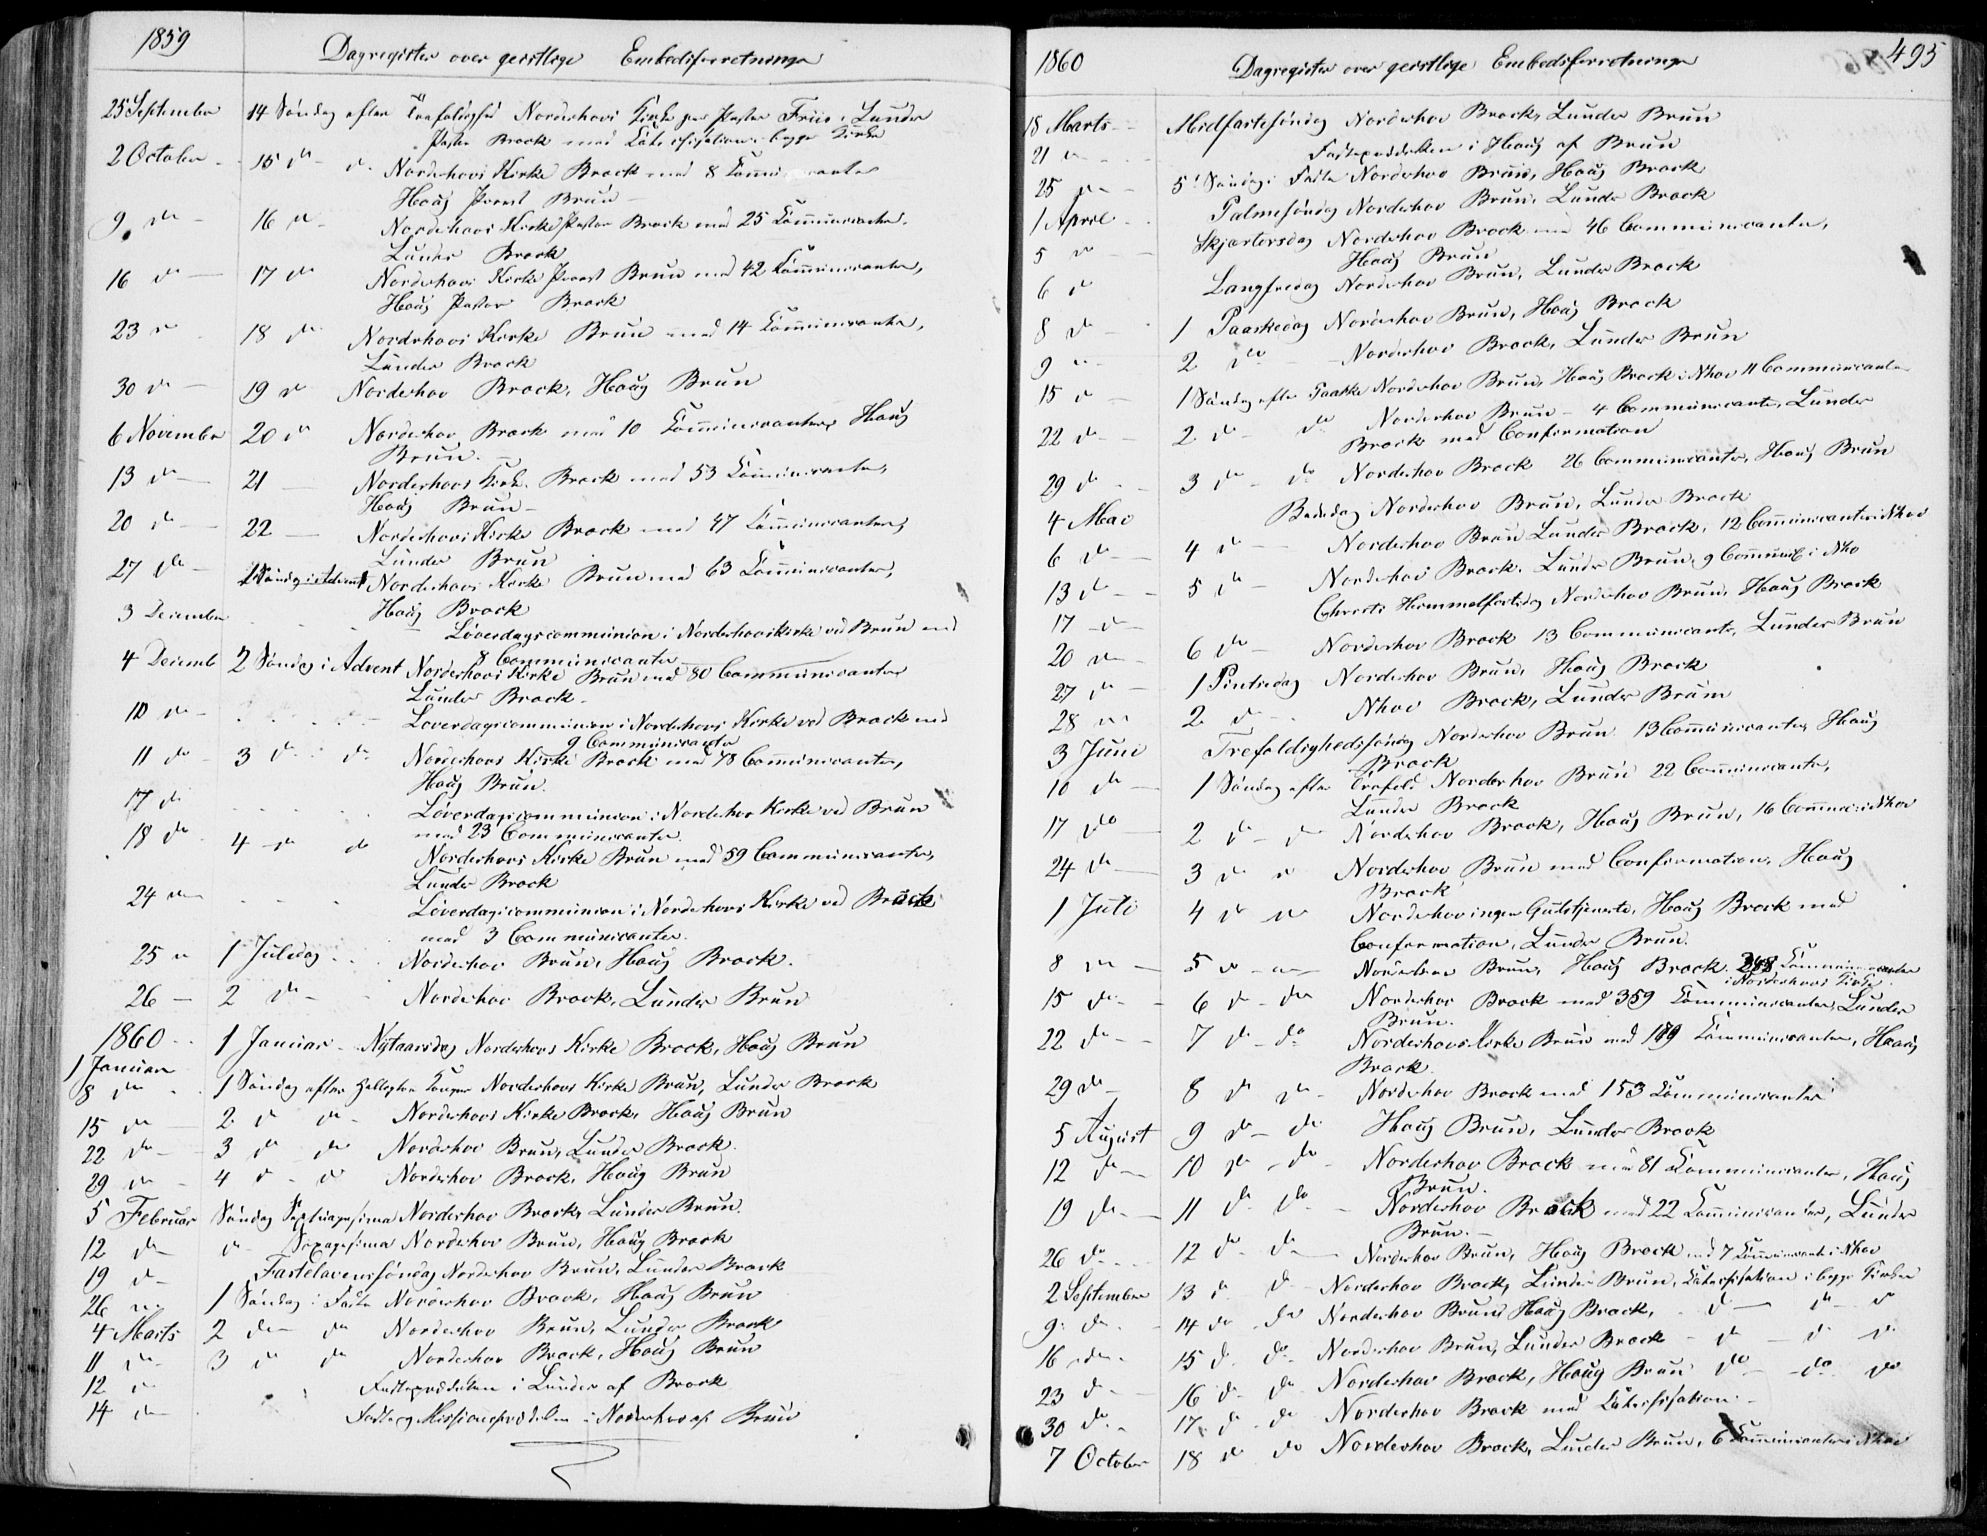 1859
Dagregister over geistlige Embedsforretninger
25 September 14 Søndag efter Trefoldighed Norderhovs Kirke Pastor Friis, Lunder
Pastor Brock med Katechisation i begge Kirker
2 October - 15 do do Norderhovs Kirke Brock med 8 Communicanter
Haug Provst Brun
9 do - 16 do - Norderhovs Kirke Pastor Brock med 25 Communicanter.
Lunder Brock
16 do 17 do Norderhovs Kirke Provst Brun med 42 Communicanter,
Haug Pastor Brock
23 do 18 do Norderhovs Kirke Brun med 14 Communicanter,
Lunder Brock
30 do - 19 do Norderhov Brock, Haug Brun
6 November 20 do Norderhov Brock med 10 Communicanter, Haug
Brun. -
13 do - 21 Norderhovs Kirke Brock med 53 Communicanter,
Haug Brun -
20 do - 22 - Norderhovs Kirke Brock med 47 Communicanter,
Lunder Brun
27 do - 1 Søndag i Advent Norderhovs Kirke Brun med 63 Communicanter,
Haug Brock
3 December Løverdagscommunion i Norderhovs Kirke ved Brun med
8 Communicanter
4 Decemb 2 Søndag i Advent Norderhovs Kirke Brun med 80 Communicanter
Lunder Brock -
10 do - Løverdagscommunion i Norderhovs Kirke ved Brock med
9 Communicanter
11 do - 3 do do Norderhovs Kirke Brock med 78 Communicanter,
Haug Brun.
17 do Løverdagscommunion i Norderhov Kirke ved Brun
med 23 Communicanter.
18 do 4 - do do Norderhovs Kirke Brun med 59 Communicanter,
Lunder Brock
24 do Løverdagscommunion i Norderhovs Kirke ved Brock
med 3 Communicanter.
25 do 1 Juledag - Norderhov Brun, Haug Brock.
26 - 2 do - Norderhov Brock, Lunder Brun
1860
1 Januar 1 Januar - Nytaarsdag Norderhovs Kirke Brock, Haug Brun
8 do 1 Søndag efter Helligtre Konger Norderhovs Kirke Brun, Lunder Brock
15 do 2 do do - Norderhovs Kirke Brock, Haug Brun
22 do - 3 do do Norderhov Brun, Lunder Brock.
29 do - 4 do - do Norderhov Brock, Haug Brun
5 Februar Søndag Septuagesima Norderhov Brock, Lunder Brun.
12 do do - Sexagesima Norderhov Brun, Haug Brock
19 do - Fastelavenssøndag Norderhov Brun, Lunder Brock
26 do 1 Søndag i Faste Norderhov Brock, Haug Brun
4 Marts 2 do do Norderhov Brun, Lunder Brock
11 do - 3 do do Norderhov Brock, Haug Brun
12 do Fasteprædiken i Lunder af Brock
14 do Faste og Missionsprædiken i Norderhov af Brun
1860
Dagregister over geistlige Embedsforretninger
495
18 Marts - Midfastesøndag Norderhov Brock, Lunder Brun
21 do Fasteprædiken i Haug af Brun
25 do - 5 Søndag i Faste Norderhov Brun, Haug Brock
1 April Palmesøndag Norderhov Brun, Lunder Brock
5 do - Skjærtorsdag Norderhov Brock med 46 Communicanter,
Haug Brun
6 do Langfredag Norderhov Brun, Lunder Brock
8 do - 1 Paaskedag Norderhov Brun, Haug Brock
9 do - 2 do - Norderhov Brock, Lunder Brun
15 do - 1 Søndag efter Paaske Norderhov Brun, Haug Brock i Nhov 11 Communicanter
22 do - 2 do - do Norderhov Brun - 4 Communicanter, Lunder
Brock med Confirmation
29 do - 3 do - do Norderhov Brock 26 Communicanter, Haug Brun
4 Mai Bededag Norderhov Brun, Lunder Brock
6 do - 4 do - Norderhov Brun Lunder Brock, 12 Communicanter i Nhov
13 do - 5 do - Norderhov Brock, Lunder Brun, 9 Communic i Nho
17 - do - Christi Himmelfartsdag Norderhov Brun, Haug Brock
20 do - 6 do - Norderhov Brock 13 Communicant, Lunder Brun
27 do - 1 Pintsedag Norderhov Brun, Haug Brock
28 do 2 do - Nhov Brock, Lunder Brun
3 Juni Trefoldighedssøndag Norderhov Brun 13 Communicanter, Haug
Brock
10 do - 1 Søndag efter Trefold Norderhov Brun 22 Communicanter,
Lunder Brock
17 do 2 do - do Norderhov Brock, Haug Brun, 16 Commun: i Nhov
24 do 3 do do Norderhov Brun med Confirmation, Haug
Brock
1 Juli 4 do do Norderhov ingen Gudstjeneste, Haug Brock med
Confirmation, Lunder Brun.
8 do - 5 do - do Norderhov Brun, Haug Brock. Communicanter
i Norderhovs Kirke
15 do - 6 do - do Norderhov Brock med 359 Communicanter, Lunder
Brun.
22 do - 7 do - do Norderhovs Kirke Brun med 119 Communicanter, Haug
Brock.
29 do - 8 do do - Norderhov Brock med 153 Communicanter
5 August 9 do - do Haug Brun, Lunder Brock
12 do - 10 do - do Norderhov Brock med 81 Communicanter, Haug
Brun.
19 do - 11 do do - Norderhov Brock med 22 Communicanter, Lunder
Brun. -
26 do 12 do - do Norderhov Brun, Haug Brock med 7 Communicant i Nhov
2 September 13 do do - Norderhov Brock, Lunder Brun, Katechisation i begge Kirker
9 do - 14 do - do Norderhov Brun, Haug Brock, - do - do - do
16 do - 15 do do Norderhov Brun, Lunder Brock - do - do do
23 do - 16 do - do Norderhov Brock, Haug Brun do - do do
30 do - 17 - do - do Norderhov Brock med Katechisation -
7 October 18 do do Norderhov Brock, Lunder Brun, 6 Communicanter i Nhov